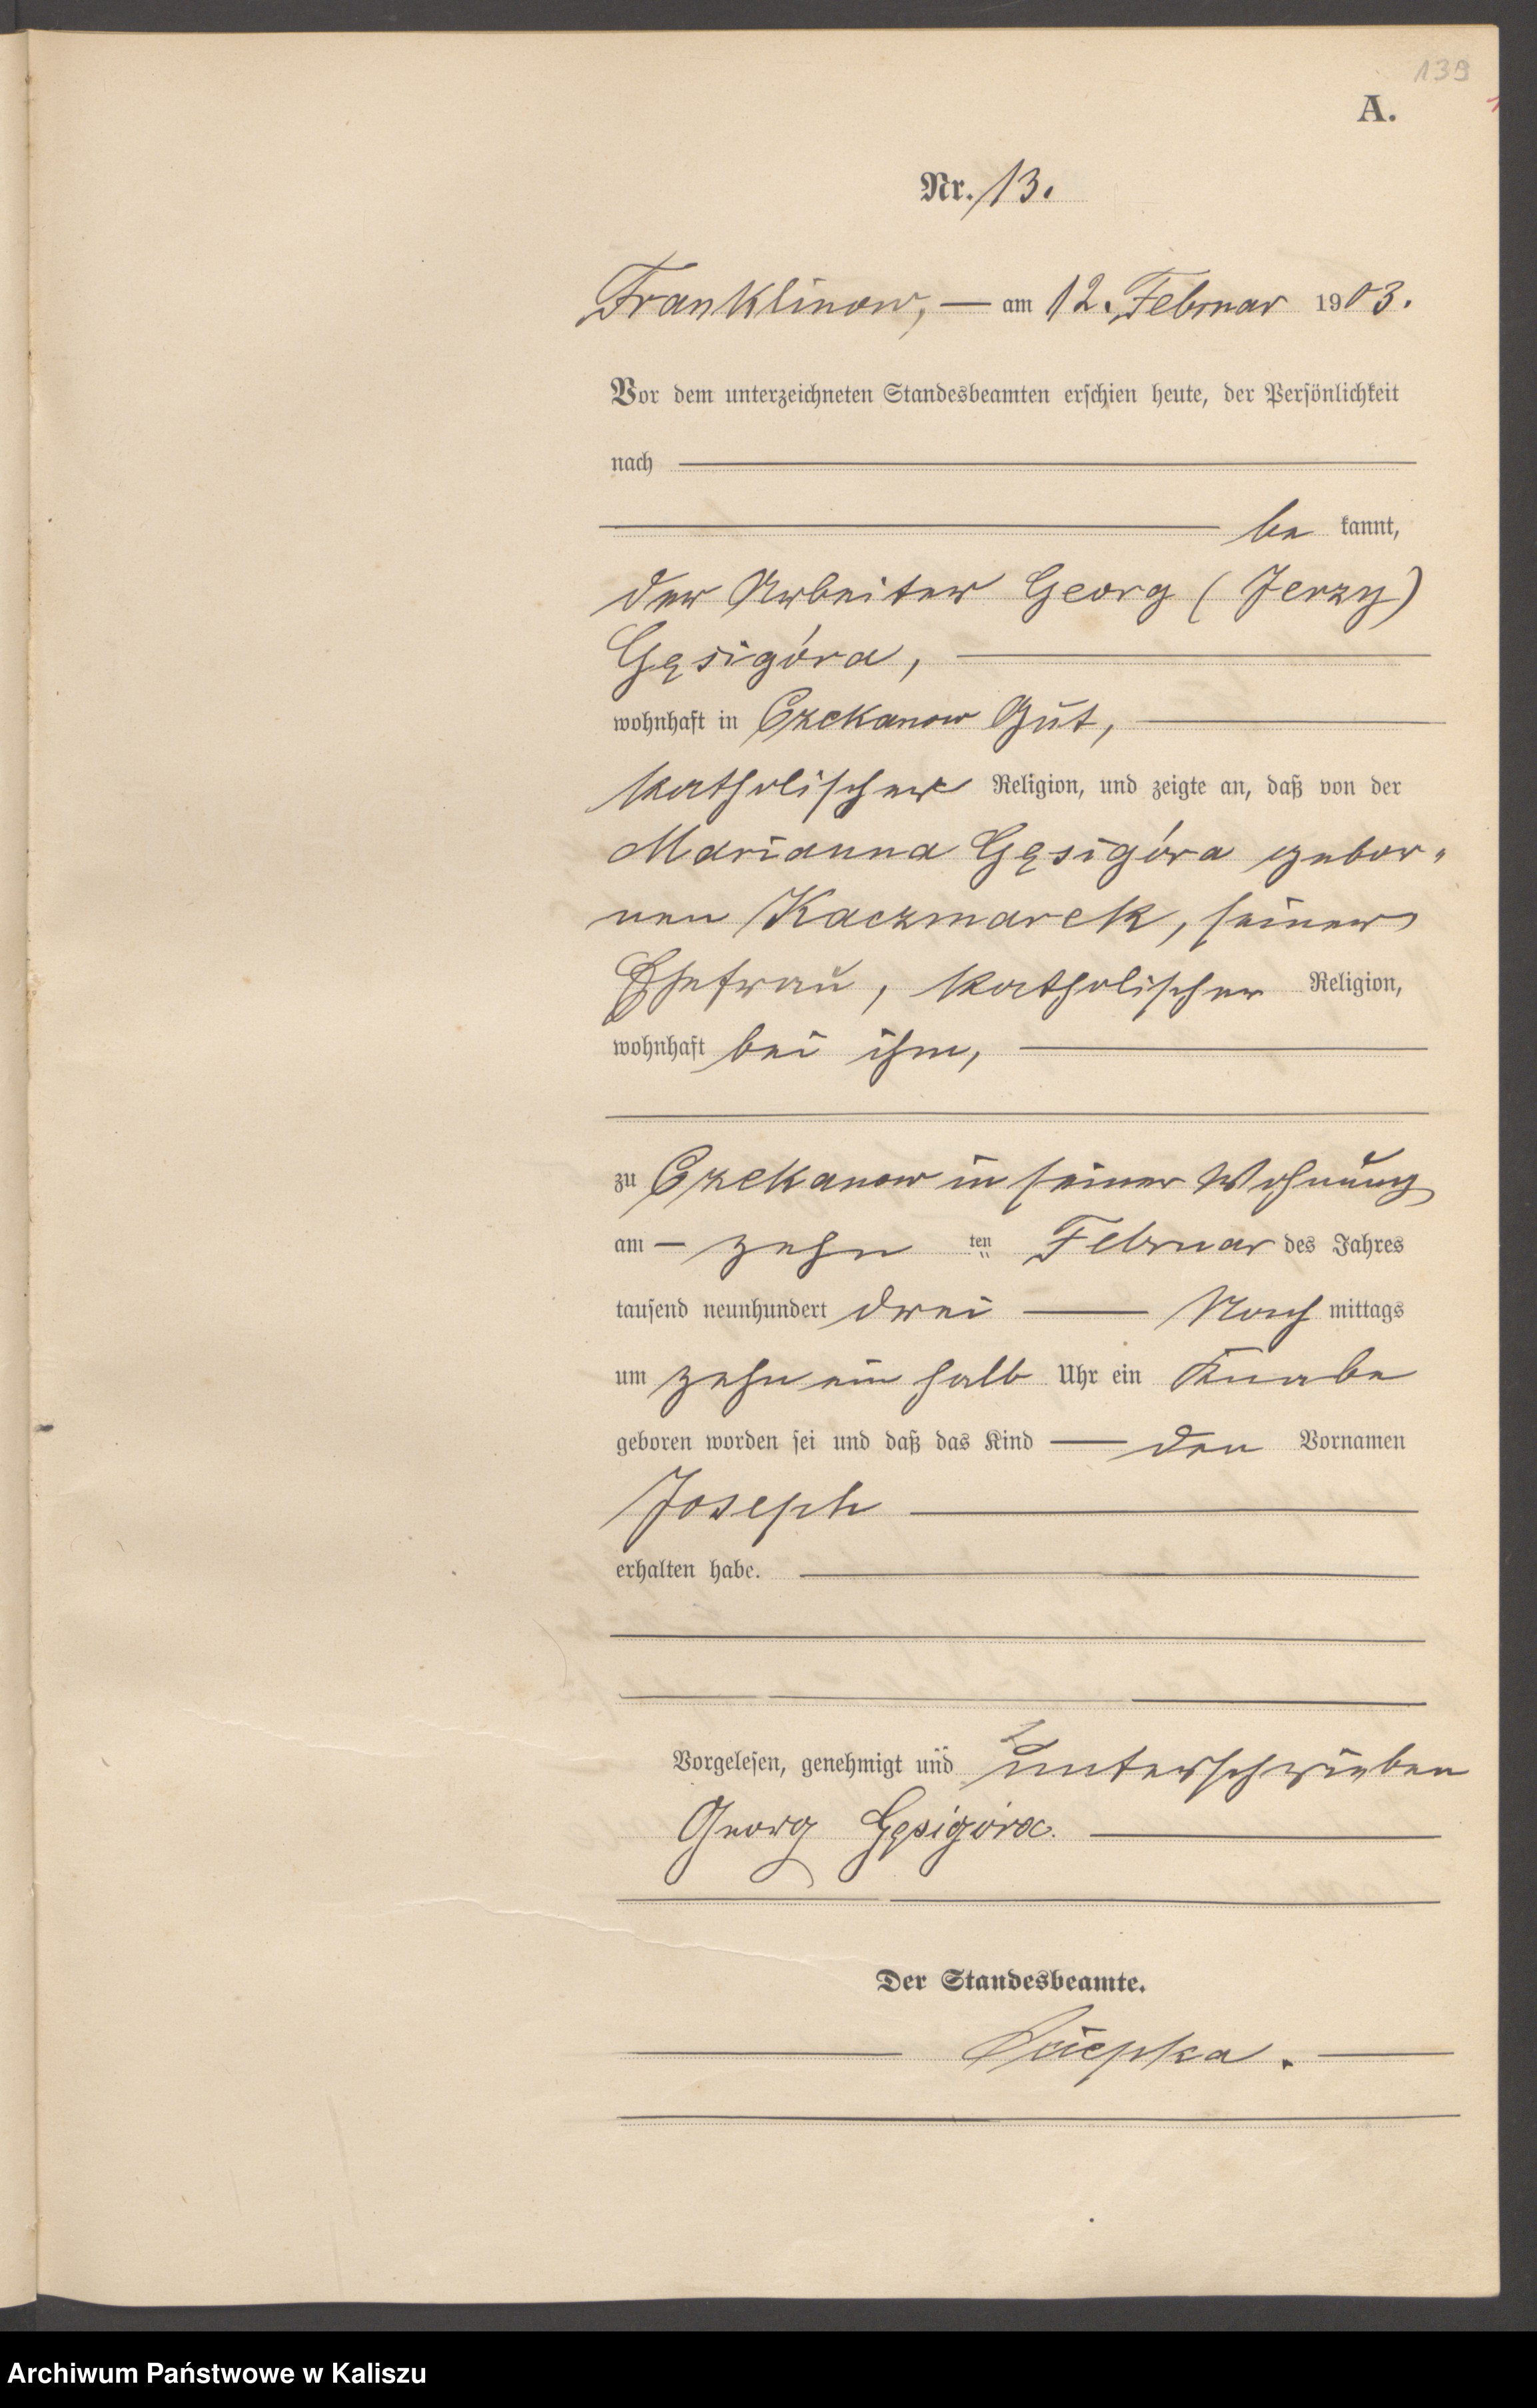 139
A.
Nr. 13.
Franklinow, — am 12. Februar 1903.
Vor dem unterzeichneten Standesbeamten erschien heute, der Persönlichkeit
nach
be kannt,
der Arbeiter Georg (Jerzy)
Gęsigóra,
wohnhaft in Czekanow Gut,
katholischer Religion, und zeigte an, daß von der
Marianna Gęsigóra gebor-
nen Kaczmarek, seiner
Ehefrau, katholischer Religion,
wohnhaft bei ihm,
zu Czekanow in seiner Wohnung
am — zehn ten Februar des Jahres
tausend neunhundert drei — Nach mittags
um zehn ein halb Uhr ein Knabe
geboren worden sei und daß das Kind — den Vornamen
Joseph
erhalten habe.
Vorgelesen, genehmigt und unterschrieben
Georg Gęsigóra.
Der Standesbeamte.
Archiwum Państwowe w Kaliszu